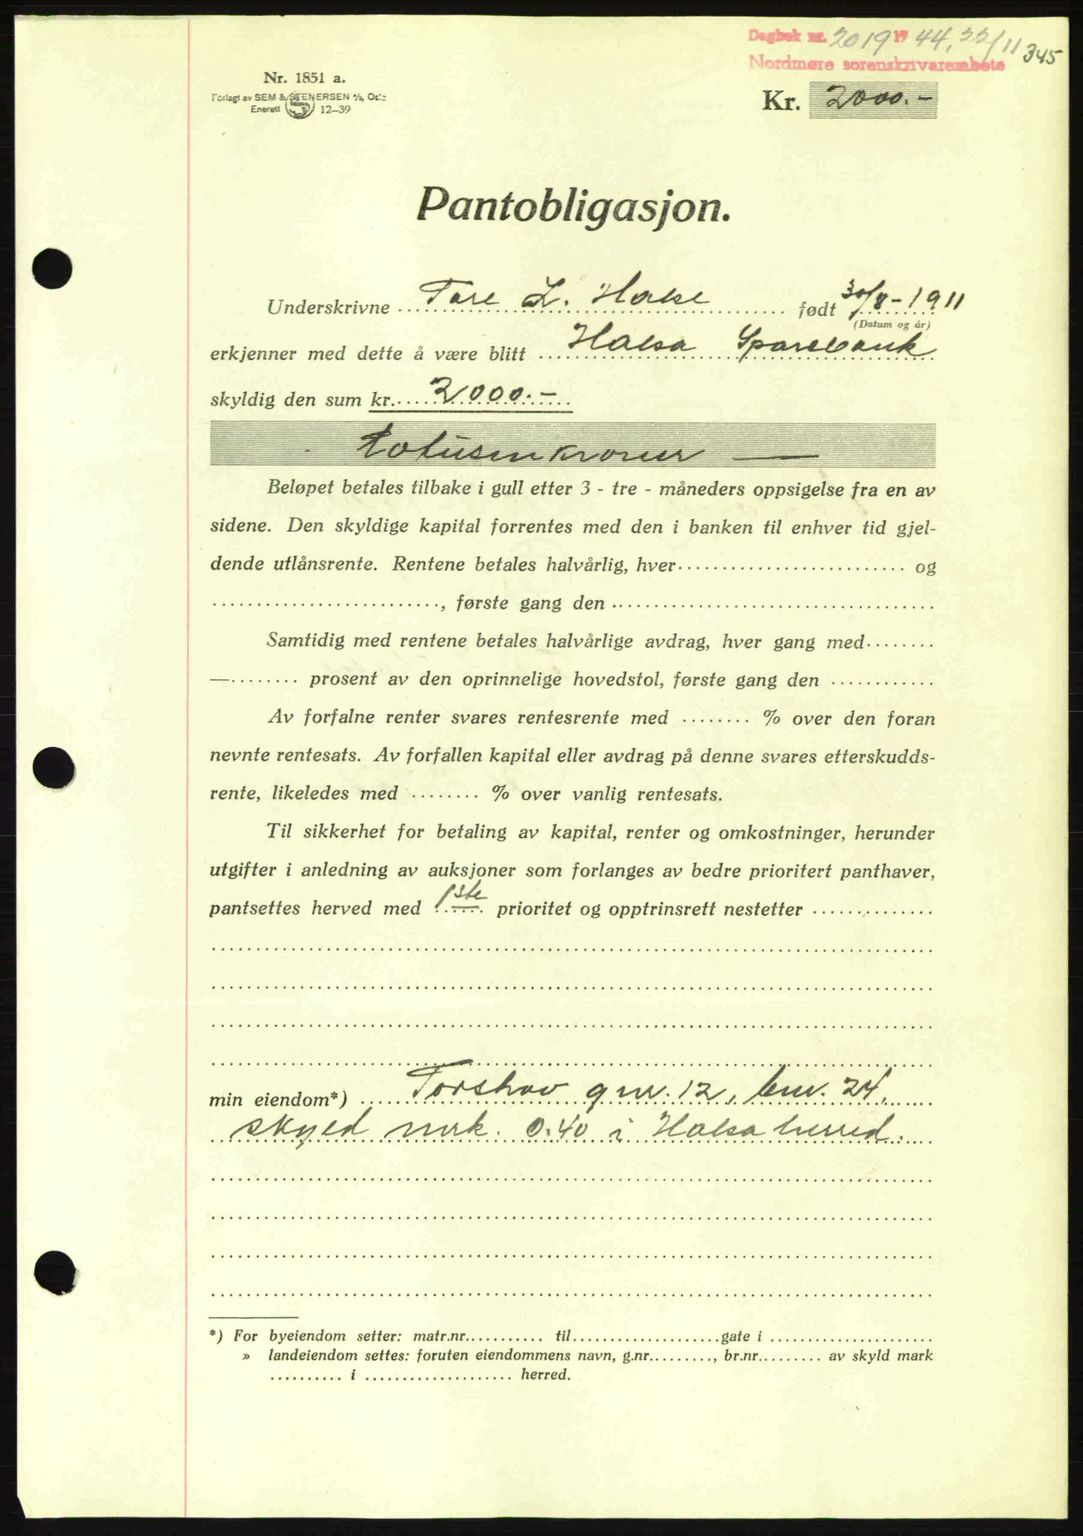 Dagbok nr. 2019 1944, 22/11 345
Nordmøre sorenskrivarembete
Nr. 1851 a.
Forlagt av SEM & STENERSEN A/S, Oslo
Enerett 12-39
Kr. 2000.-
Pantobligasjon.
Underskrivne Tore L. Halse født 30/8-1911
(Datum og år)
erkjenner med dette å være blitt Halsa Sparebank
skyldig den sum kr. 2000.-
totusen kroner —
Beløpet betales tilbake i gull etter 3 - tre - måneders oppsigelse fra en av
sidene. Den skyldige kapital forrentes med den i banken til enhver tid gjel-
dende utlånsrente. Rentene betales halvårlig, hver........................ og
........................, første gang den ........................
Samtidig med rentene betales halvårlige avdrag, hver gang med........
—........ prosent av den oprinnelige hovedstol, første gang den ............
Av forfalne renter svares rentesrente med ........ % over den foran
nevnte rentesats. Av forfallen kapital eller avdrag på denne svares etterskudds-
rente, likeledes med ........ % over vanlig rentesats.
Til sikkerhet for betaling av kapital, renter og omkostninger, herunder
utgifter i anledning av auksjoner som forlanges av bedre prioritert panthaver,
pantsettes herved med 1ste prioritet og opptrinsrett nestetter ..............
min eiendom*) Torshov gnr. 12, bnr. 24,
skyld mrk. 0.40 i Halsa herred.
*) For byeiendom setter: matr.nr........... til....................gate i ......................
» landeiendom settes: foruten eiendommens navn, g.nr.........., br.nr......... av skyld mark
.......... i .................... herred.